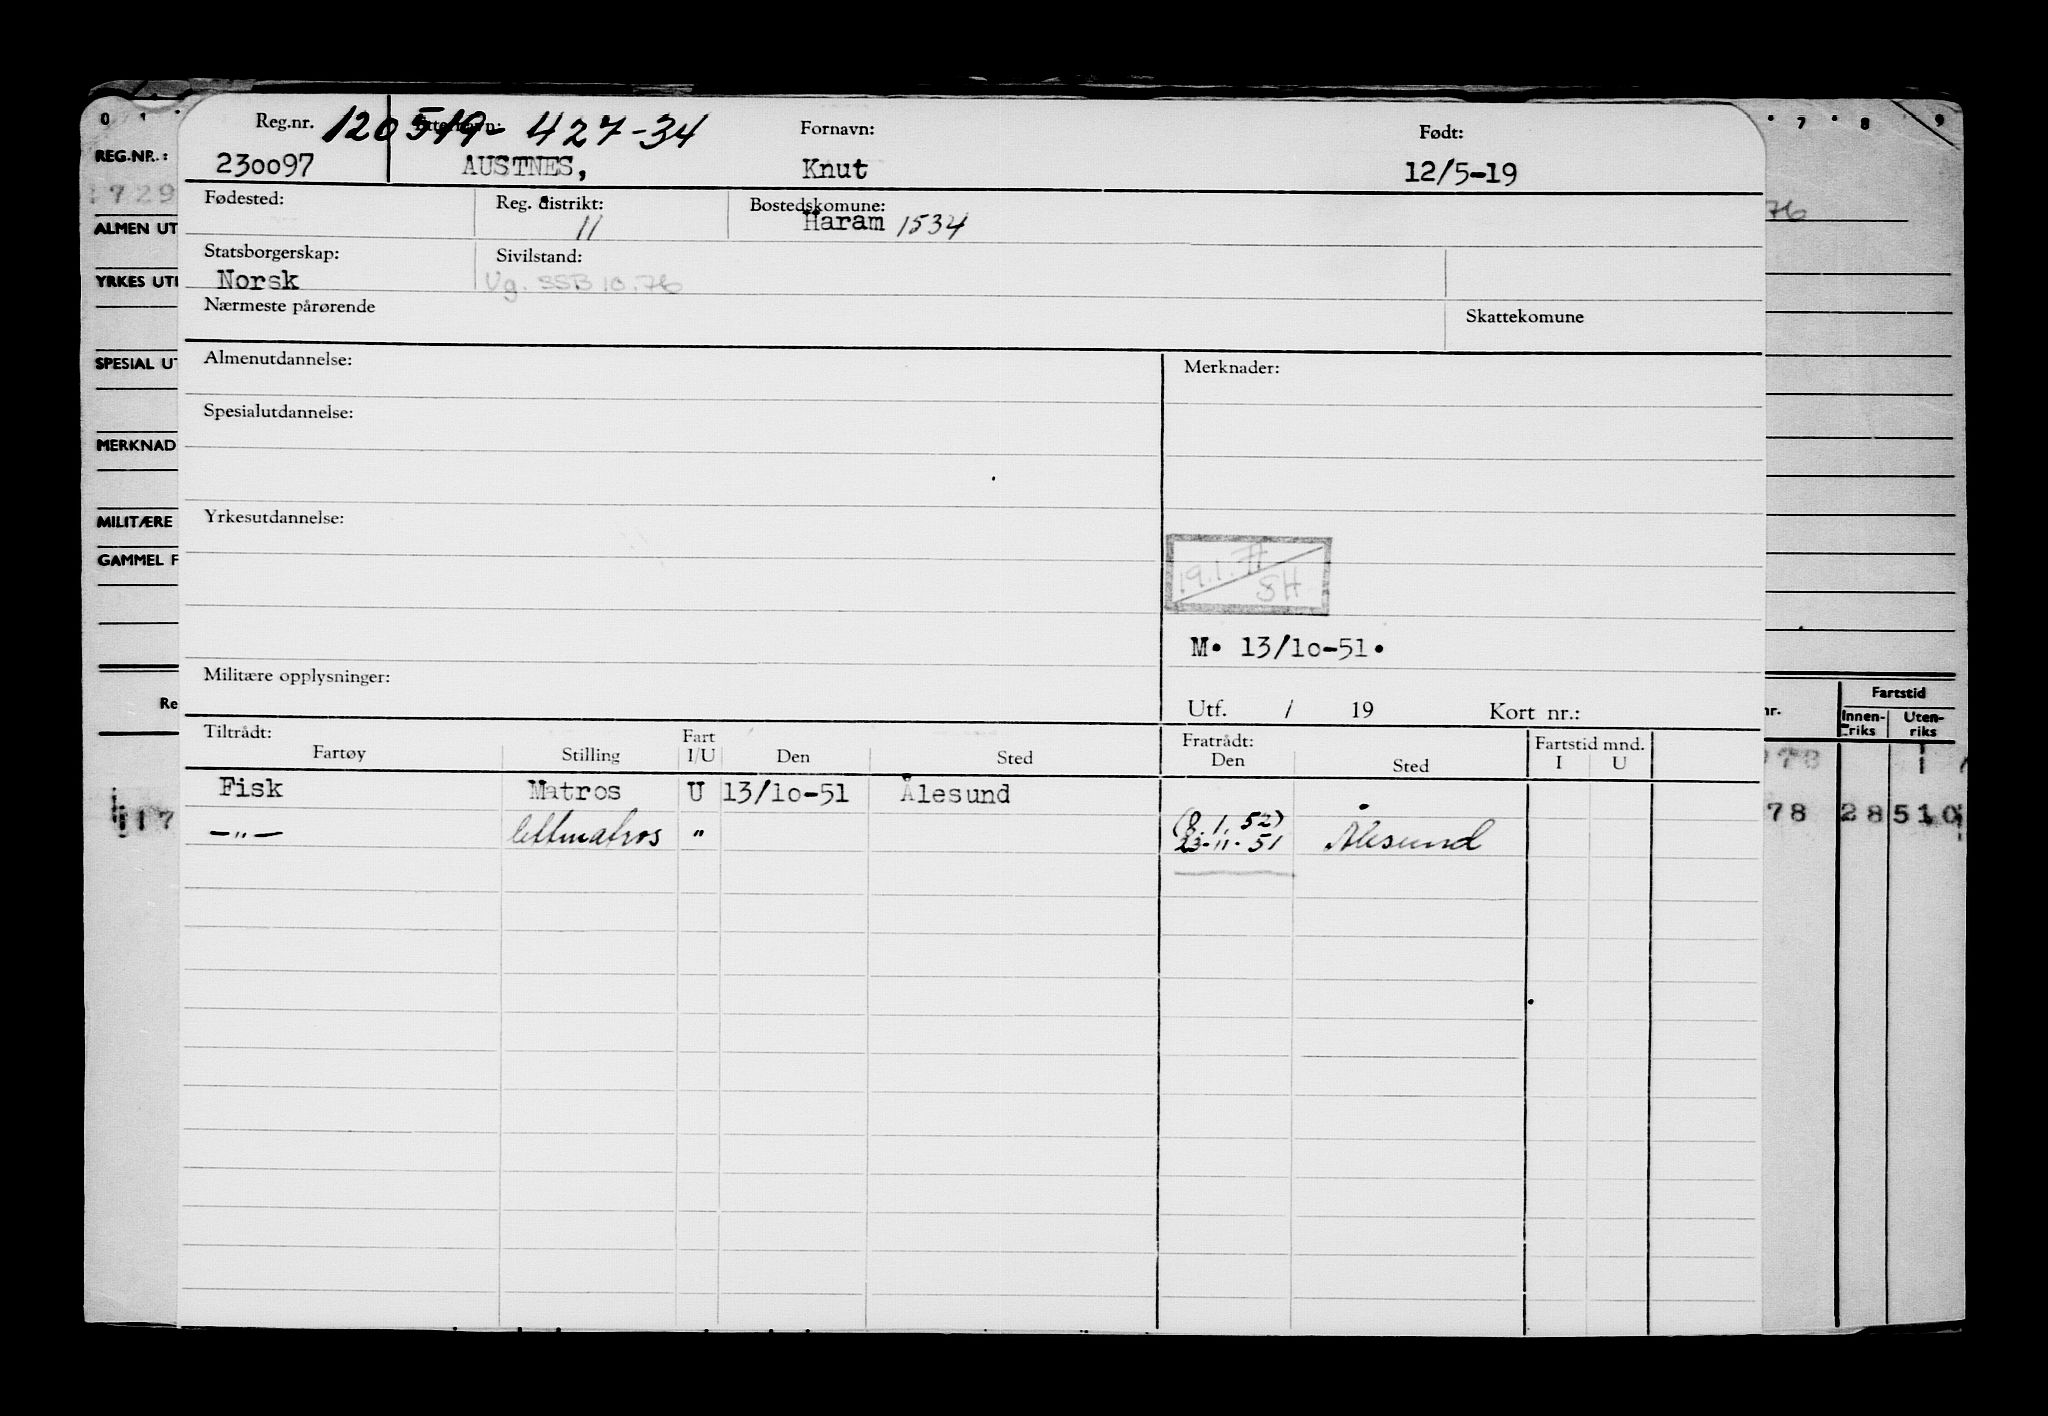 0 7 8 9
REG.NR.:
ALMEN UT
YRKES UT
SPESIAL UT
MERKNAD
MILITÆRE
GAMMEL F
Re
Reg.nr. 120519-427-34 Etternavn: Fornavn: Født:
230097 AUSTNES, Knut 12/5-19
Fødested: Reg. distrikt: 11 Bostedskomune: Haram 1534
76
Statsborgerskap: Norsk Sivilstand: Ug. SSB 10.76
Nærmeste pårørende Skattekomune
Almenutdannelse: Merknader:
Spesialutdannelse:
Yrkesutdannelse:
19.1.77
SH
M. 13/10-51.
Militære opplysninger:
Utf. / 19 Kort nr.:
nr. Fartstid
Innenriks Utenriks
Tiltrådt: Fratrådt: Fartstid mnd.
Fartøy Stilling Fart I/U Den Sted Den Sted I U
Fisk Matros U 13/10-51 Ålesund
—"— lettmatros " (8.1.52)
23-11-51 Ålesund
17 78 28 510